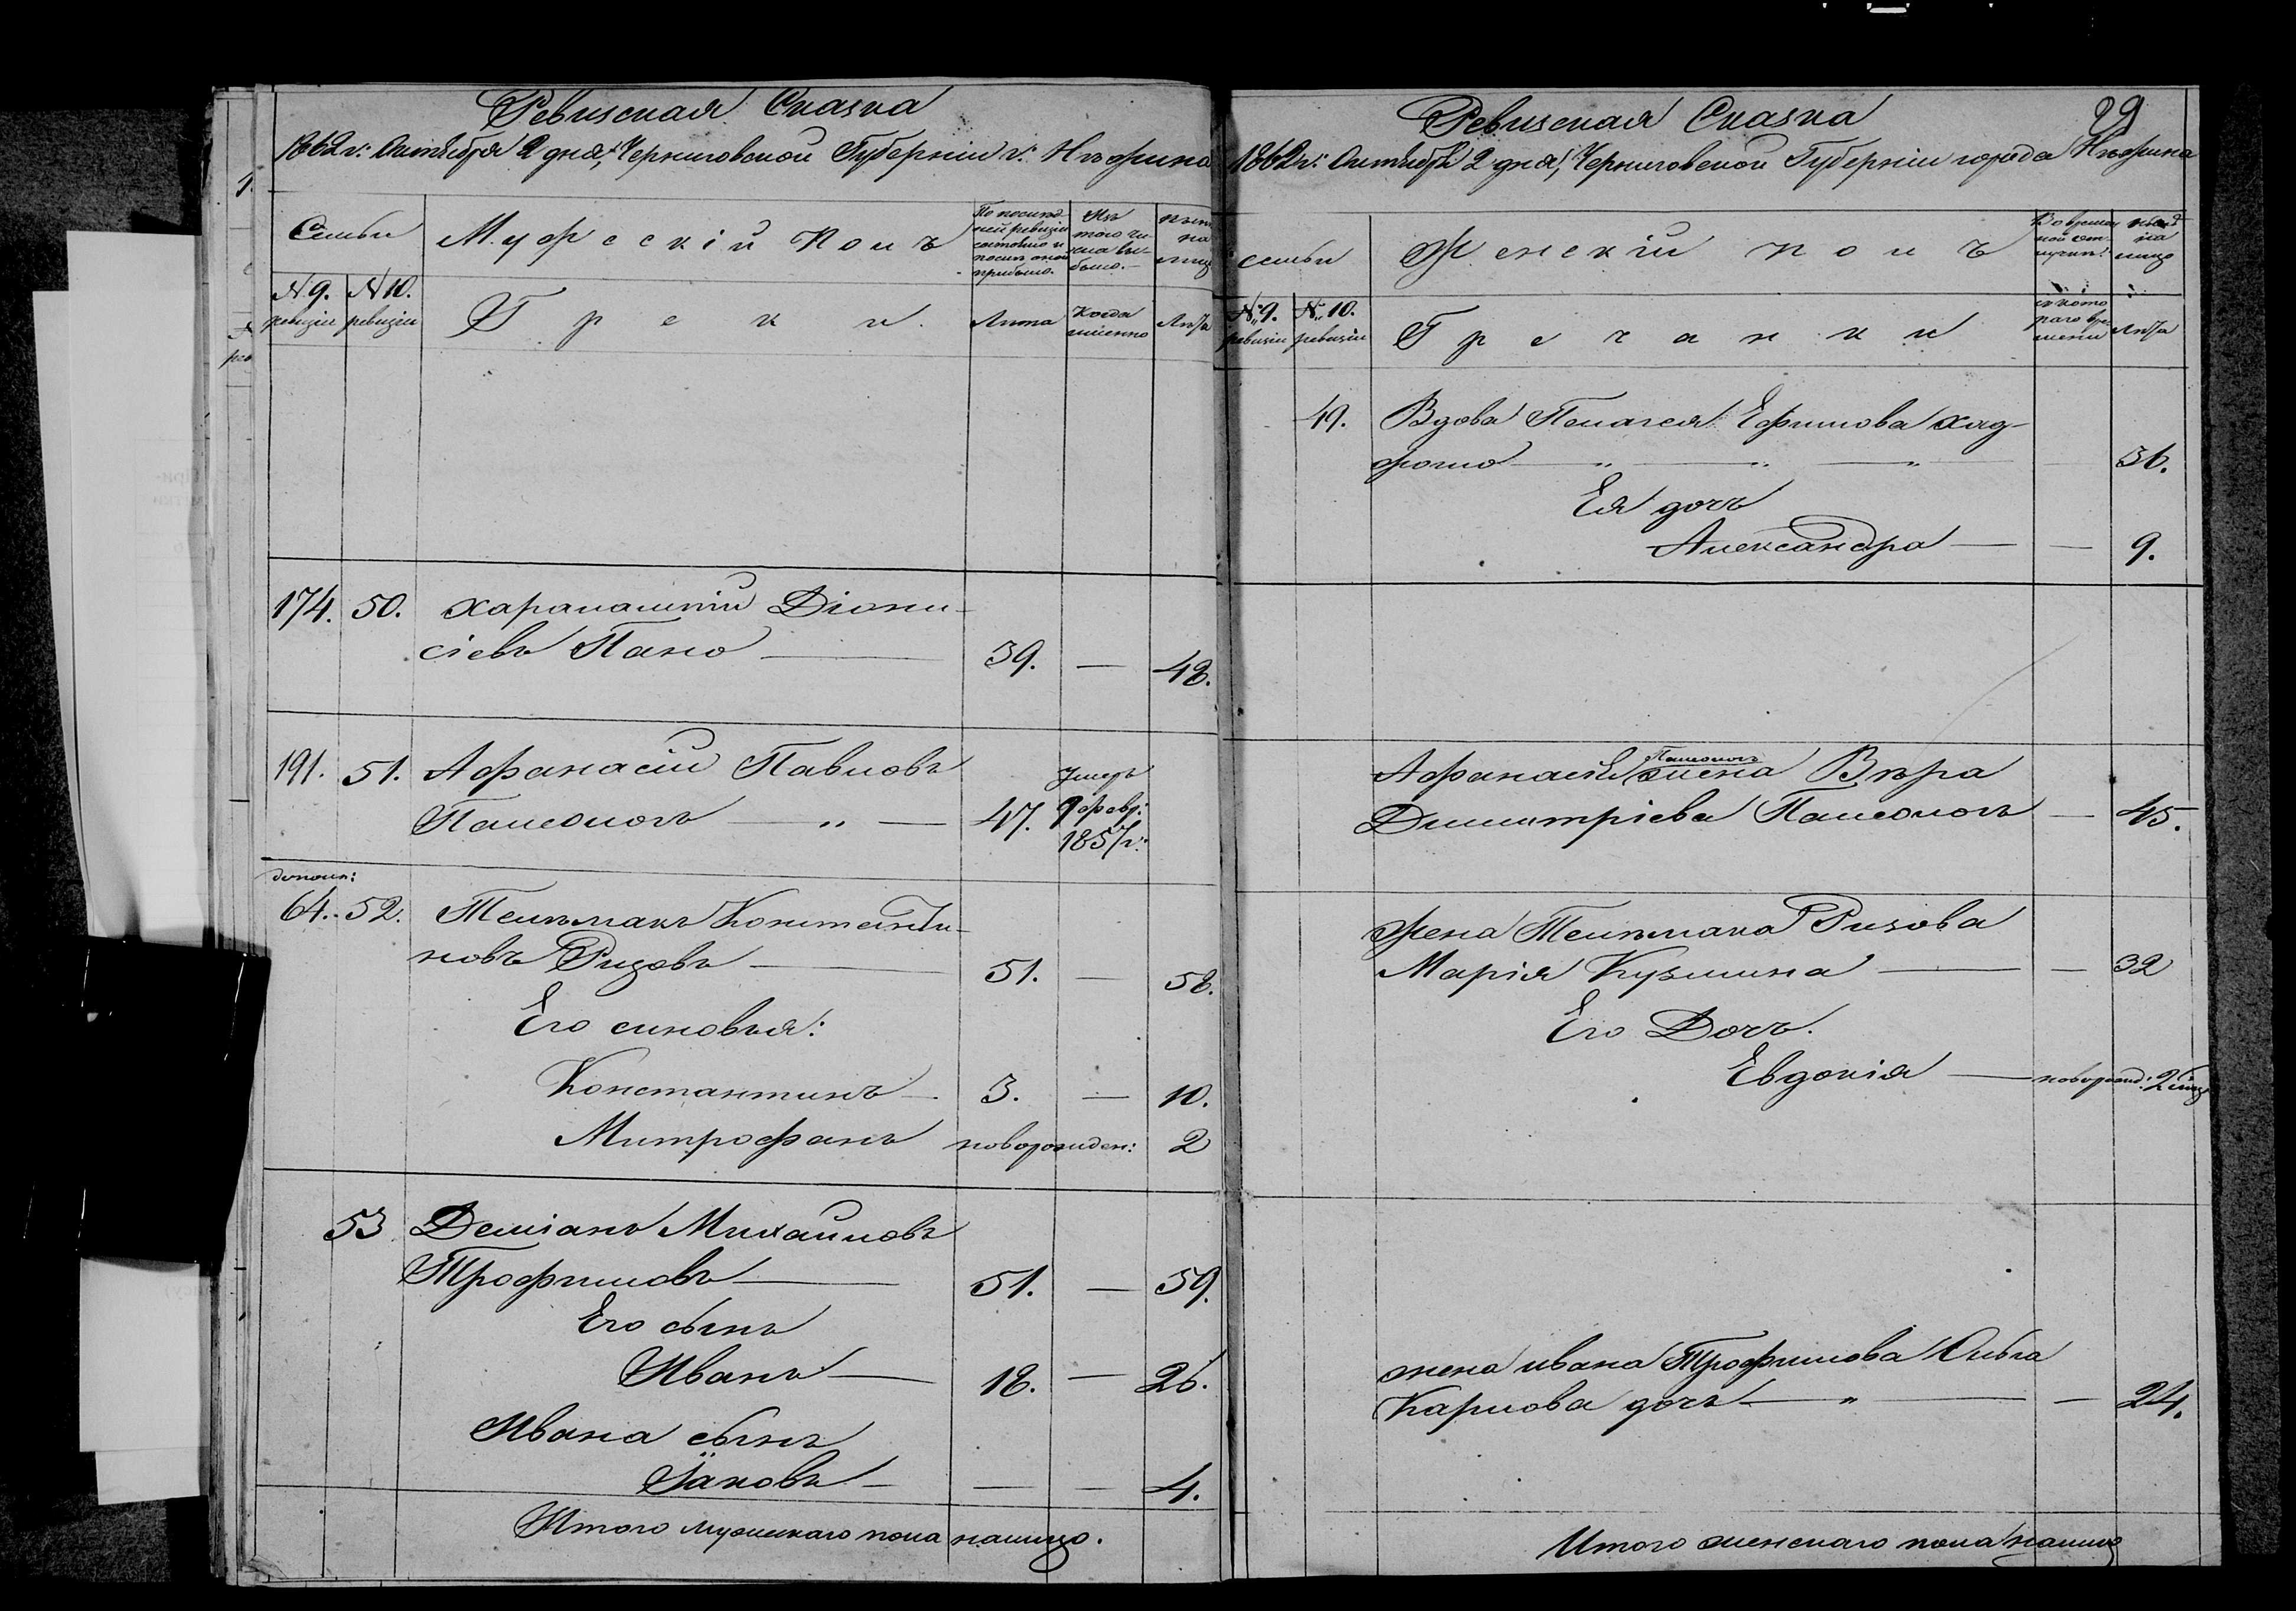 Ревизская Сказка
1862 г: Октября 2 дня, Черниговской Губерніи г. Нѣжина
Семьи
Мужескій Полъ
По послѣд-
ней ревизіи
состояло и
послѣ оной
прибыло.
Изъ
того чи-
сла вы-
было.
нынѣ
на
лицо
№ 9. № 10.
ревизіи ревизіи
Греки.
Лѣта
Когда
имѣнно
Лѣта
174. 50. Харалампій Діони-
сіевъ Пано 39. — 48.
191. 51. Афанасій Павловъ
Умеръ
Памеологъ — „ — 47. 9 февр:
1857 г:
дополн:
64. 52. Телѣмакъ Константи-
новъ Ризовъ 51. — 58.
Его синовья:
Константинъ 3. — 10.
Митрофанъ новорожден: 2
53 Деміанъ Михайловъ
Трофимовъ 51. — 59.
Его сынъ
Иванъ 18. — 26.
Ивана сынъ
Іаковъ — — — 4.
Итого мужескаго пола налицо.
Ревизская Сказка
29
1862 г: Октября 2 дня, Черниговской Губерніи города Нѣжина
семьи
Женскій полъ
Во времен
ной от-
лучкѣ
нынѣ
на
лицо
№ 9. № 10.
ревизіи ревизіи
Гречанки
съ кото
раго вре
мени
Лѣта
49. Вдова Пелагея Ефимова Хад-
жогло — „ — „ — „ — 36.
Ея дочъ
Александра — — 9.
Памеологъ
Афанасія жена Вѣра
Димитріева Памеологъ — 45.
Жена Телѣмака Ризова
Марія Кузмина — — 32
Его Дочъ.
Евдокія — новорожд: 2 мѣц
жена ивана Трофимова Ольга
Карпова дочъ — „ — — 24.
Итого женскаго пола налицо